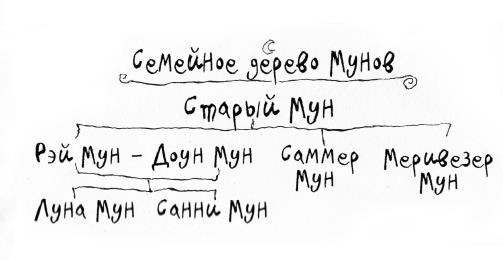 Семейное дерево Мунов
Старый Мун
Рэй Мун – Доун Мун Саммер Мун Меривезер Мун
Луна Мун Санни Мун